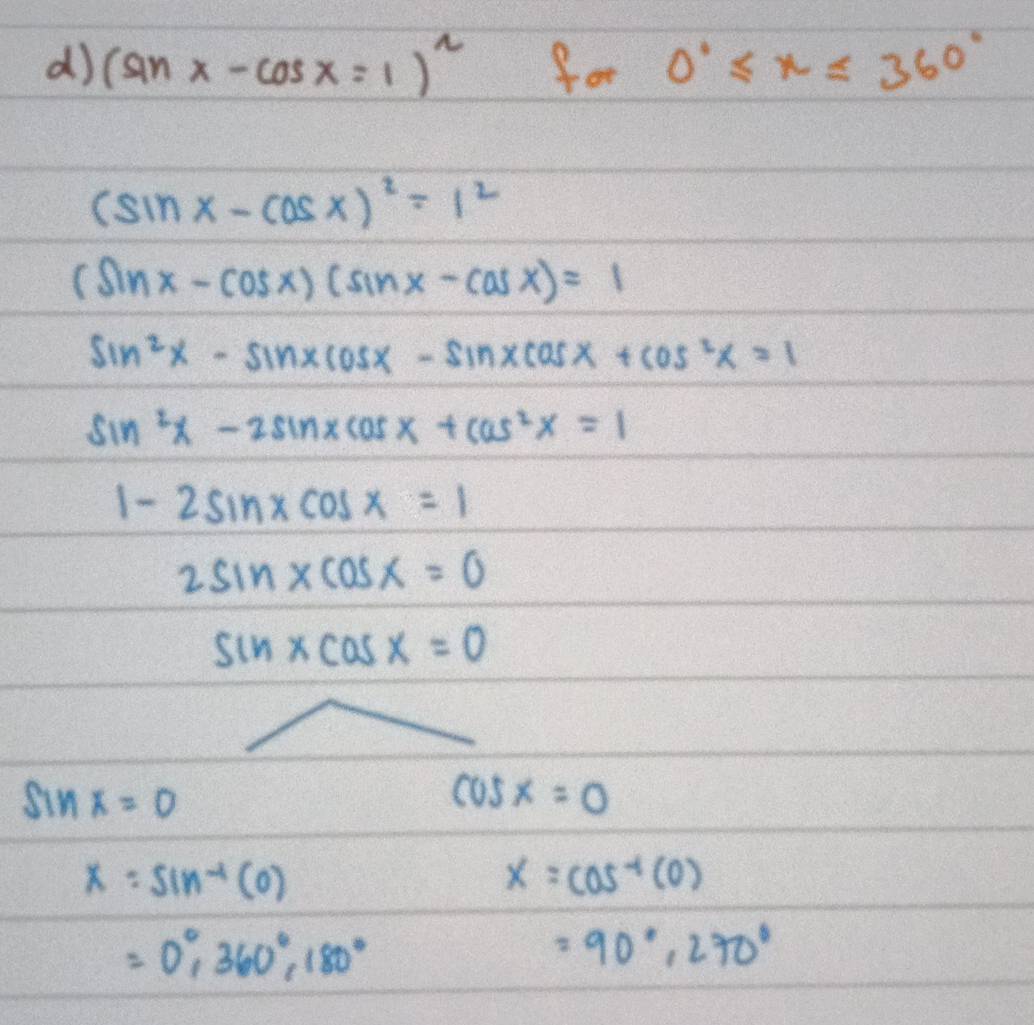 d) (sin x - cos x = 1)² for 0° ≤ x ≤ 360°
(sin x - cos x)² = 1²
(sin x - cos x) (sin x - cos x) = 1
sin²x - sin x cos x - sin x cos x + cos²x = 1
sin²x - 2 sin x cos x + cos²x = 1
1 - 2 sin x cos x = 1
2 sin x cos x = 0
sin x cos x = 0
sin x = 0 cos x = 0
x = sin⁻¹(0) x = cos⁻¹(0)
= 0°, 360°, 180° = 90°, 270°